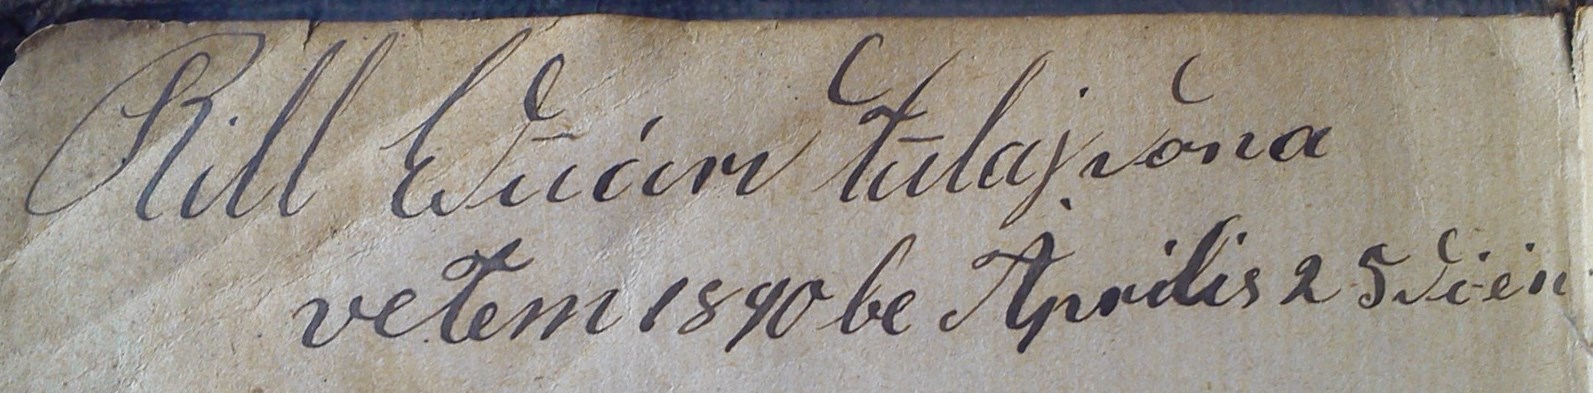 Rill Eduárd tulajdona
vetem 1890 be Április 25 dién